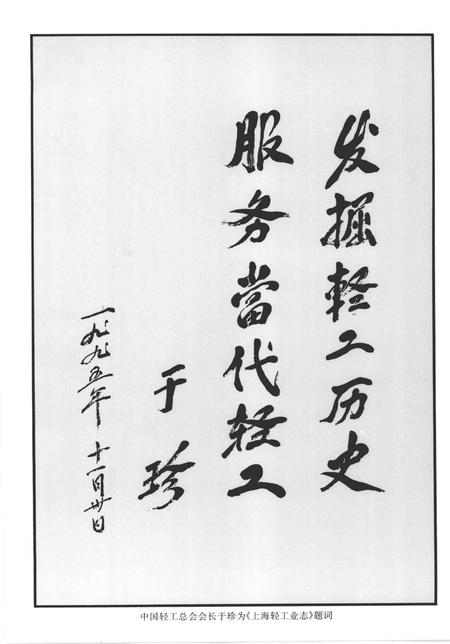 发掘軽工历史
服务當代轻工
于珍
一九九五年十一月卅日
中国轻工总会会长于珍为《上海轻工业志》题词